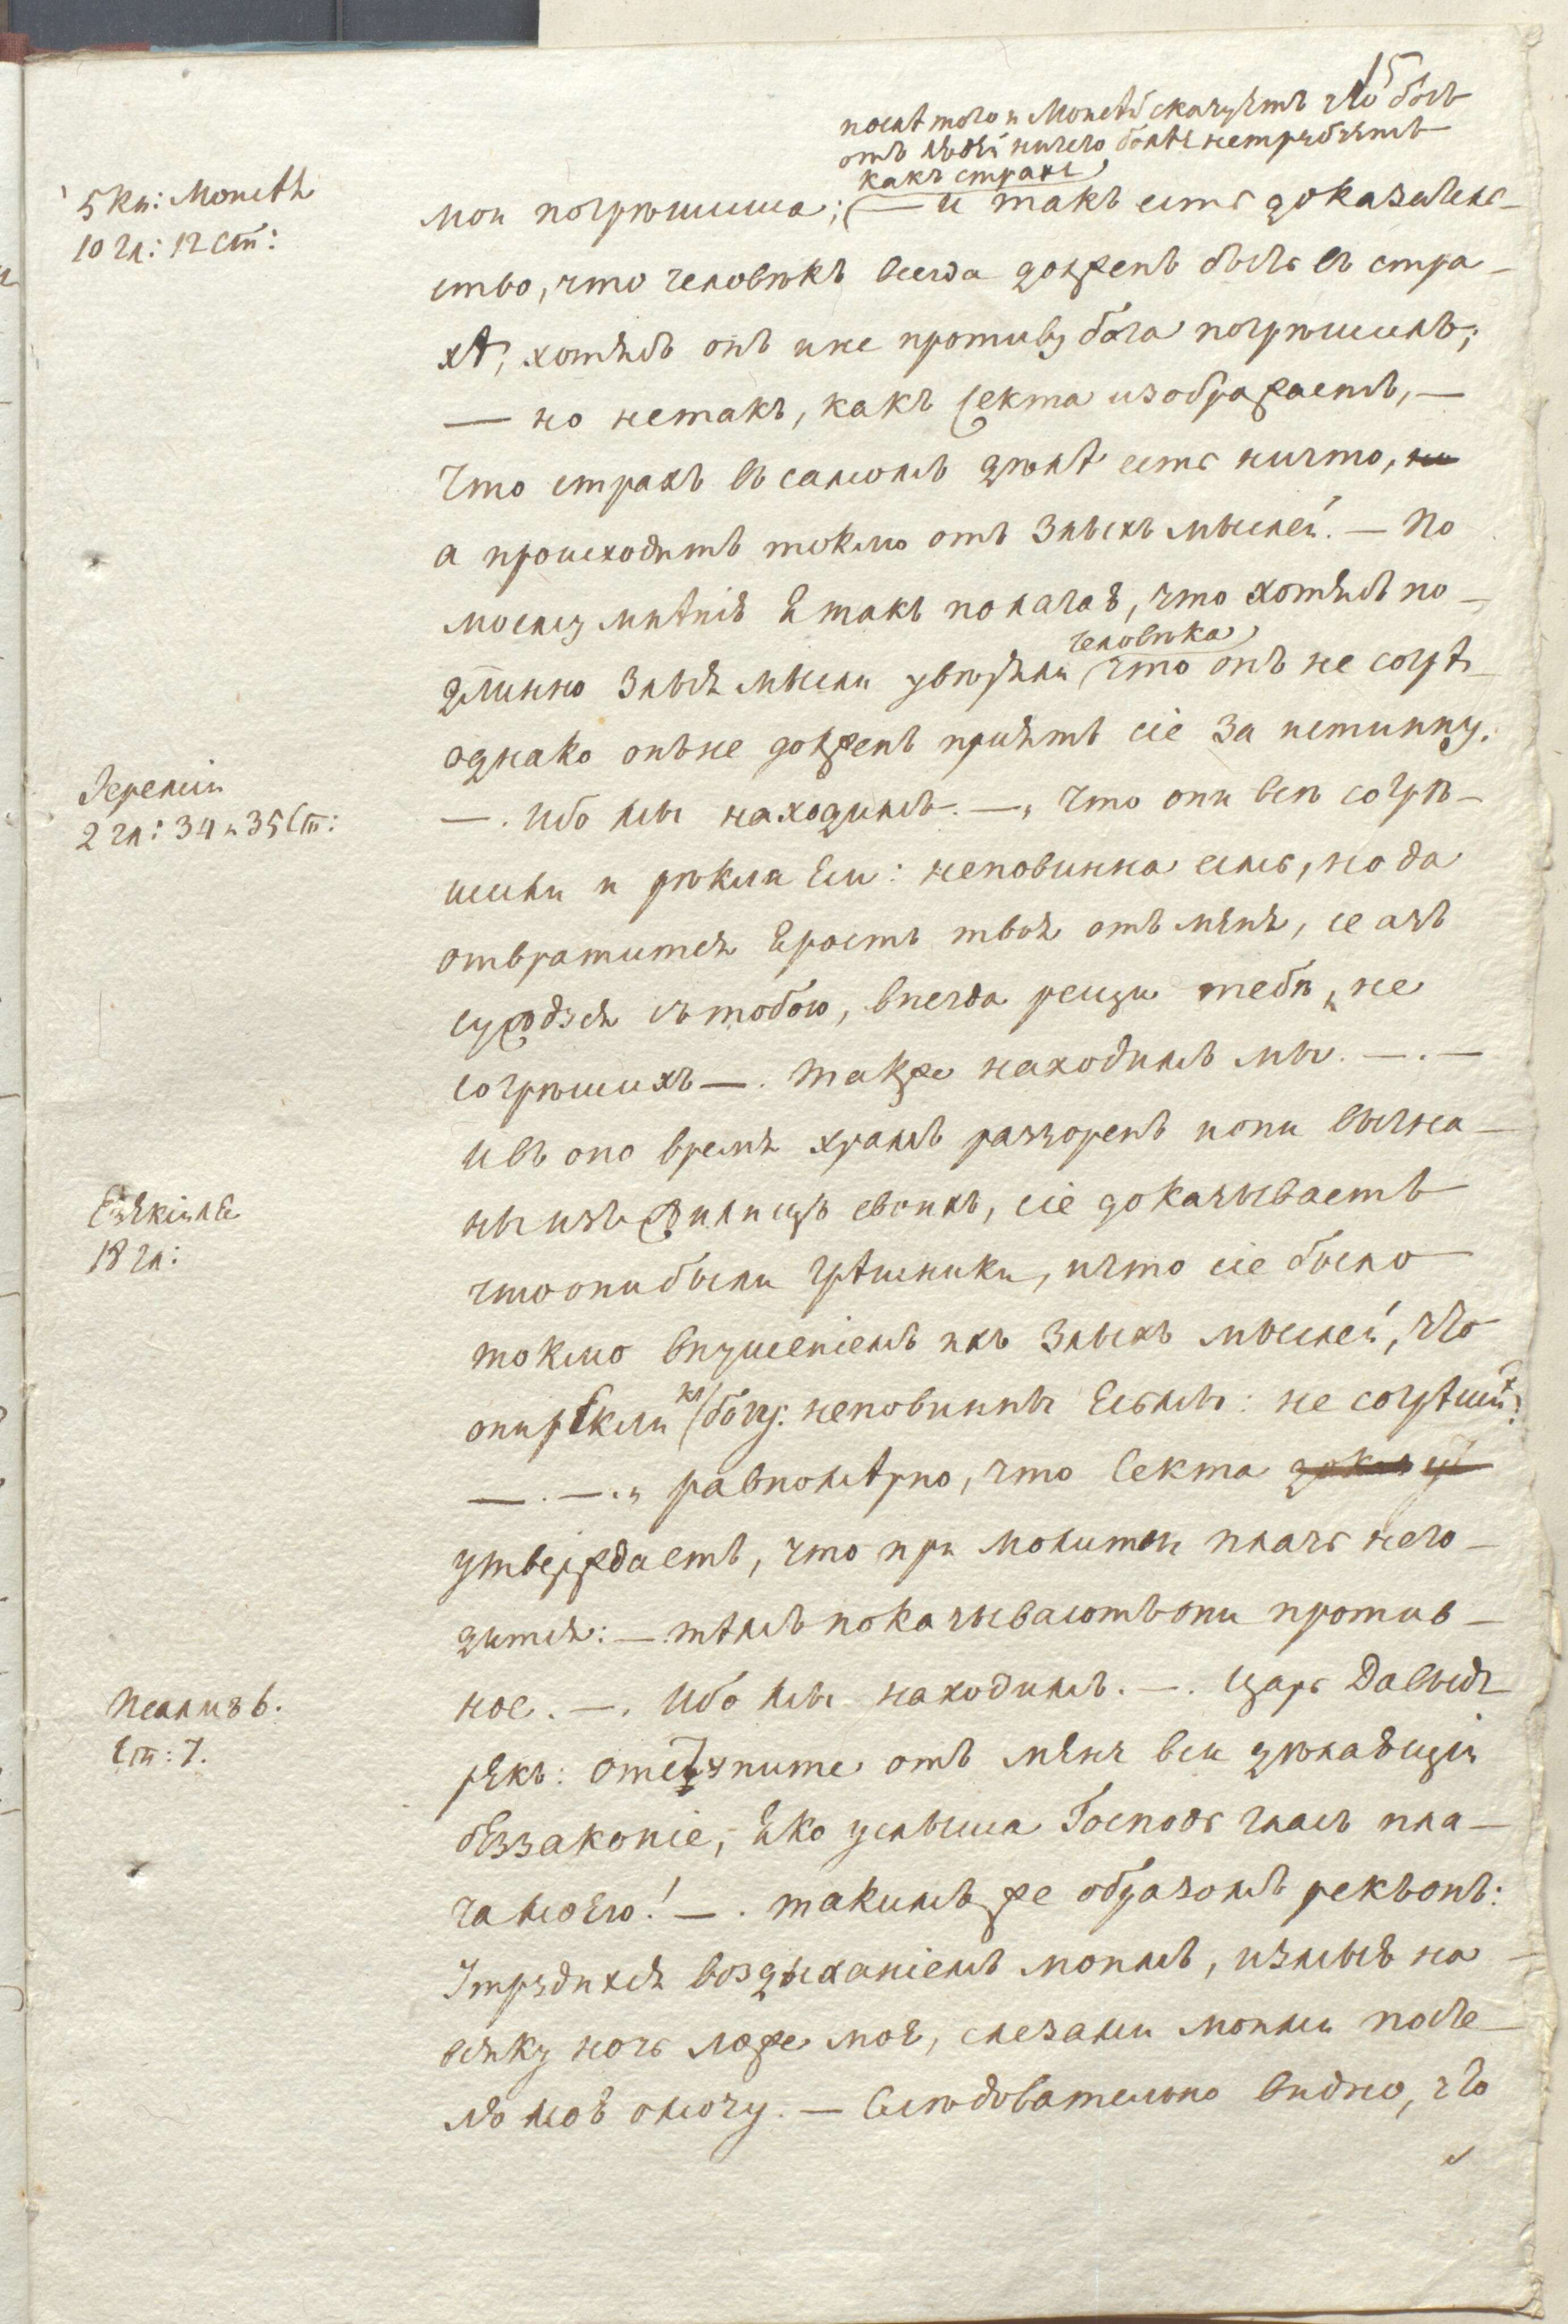 15
послѣ того и Моисей скажетъ что богъ
отъ людей ничего болѣе нетребуетъ
какъ страхъ
5 Кн: Моисеѣ
10 гл: 12 ст:
мои погрѣшиша; — И такъ есть доказатель-
ство, что человѣкъ всегда долженъ быть въ стра-
хѣ, хотябъ онъ и не противу бога погрѣшилъ;
— но нетакъ, какъ секта изображаетъ, —
Что страхъ въ самомъ дѣлѣ есть ничто, но
а происходитъ токмо отъ злыхъ мыслей. — По
моему мнѣнію я такъ полагаю, что хотябъ по-
человѣка
длинно злыя мысли увѣряли что онъ не согрѣ-
однако онъ не долженъ пріять сіе за истинну.
Іереміи
2 гл: 34 и 35 Ст:
—. Ибо мы находимъ. —, Что они всѣ согрѣ-
шили и рѣкли Еси: неповинна есмь, но да
отвратится ярость твоя отъ мяня, се азъ
суждуся съ тобою, внегда рещи тебѣ, не
согрѣшихъ —. Также находимъ мы. —. —
Ивъ оно время храмъ раззоренъ иони выгна-
Езекіиля
18 гл:
ны изъ жилищъ своихъ, сіе доказываетъ
что они были грѣшники, ичто сіе было
токмо внушеніемъ ихъ злыхъ мыслей, что
къ
они рѣкли богу: неповинны Есьмы: не согрѣши:
—. —. „ равномѣрно, что Секта
утверждаетъ, что при молитвѣ плачь него-
дится: — тѣмъ показываютъ они против-
Псаломъ 6.
Ст: 7.
ное. —. Ибо мы находимъ. —. Царь Давыдъ
рекъ: отступите отъ мяня вси дѣлающіи
беззаконіе, яко услыша Господь гласъ пла-
ча моего! —. такимъ же образомъ рекъ онъ:
Утрудихся воздыханіемъ моимъ, измыю на
всяку ночь ложе мое, слезами моими посте-
лю мою омочу. — Слѣдовательно видно, что